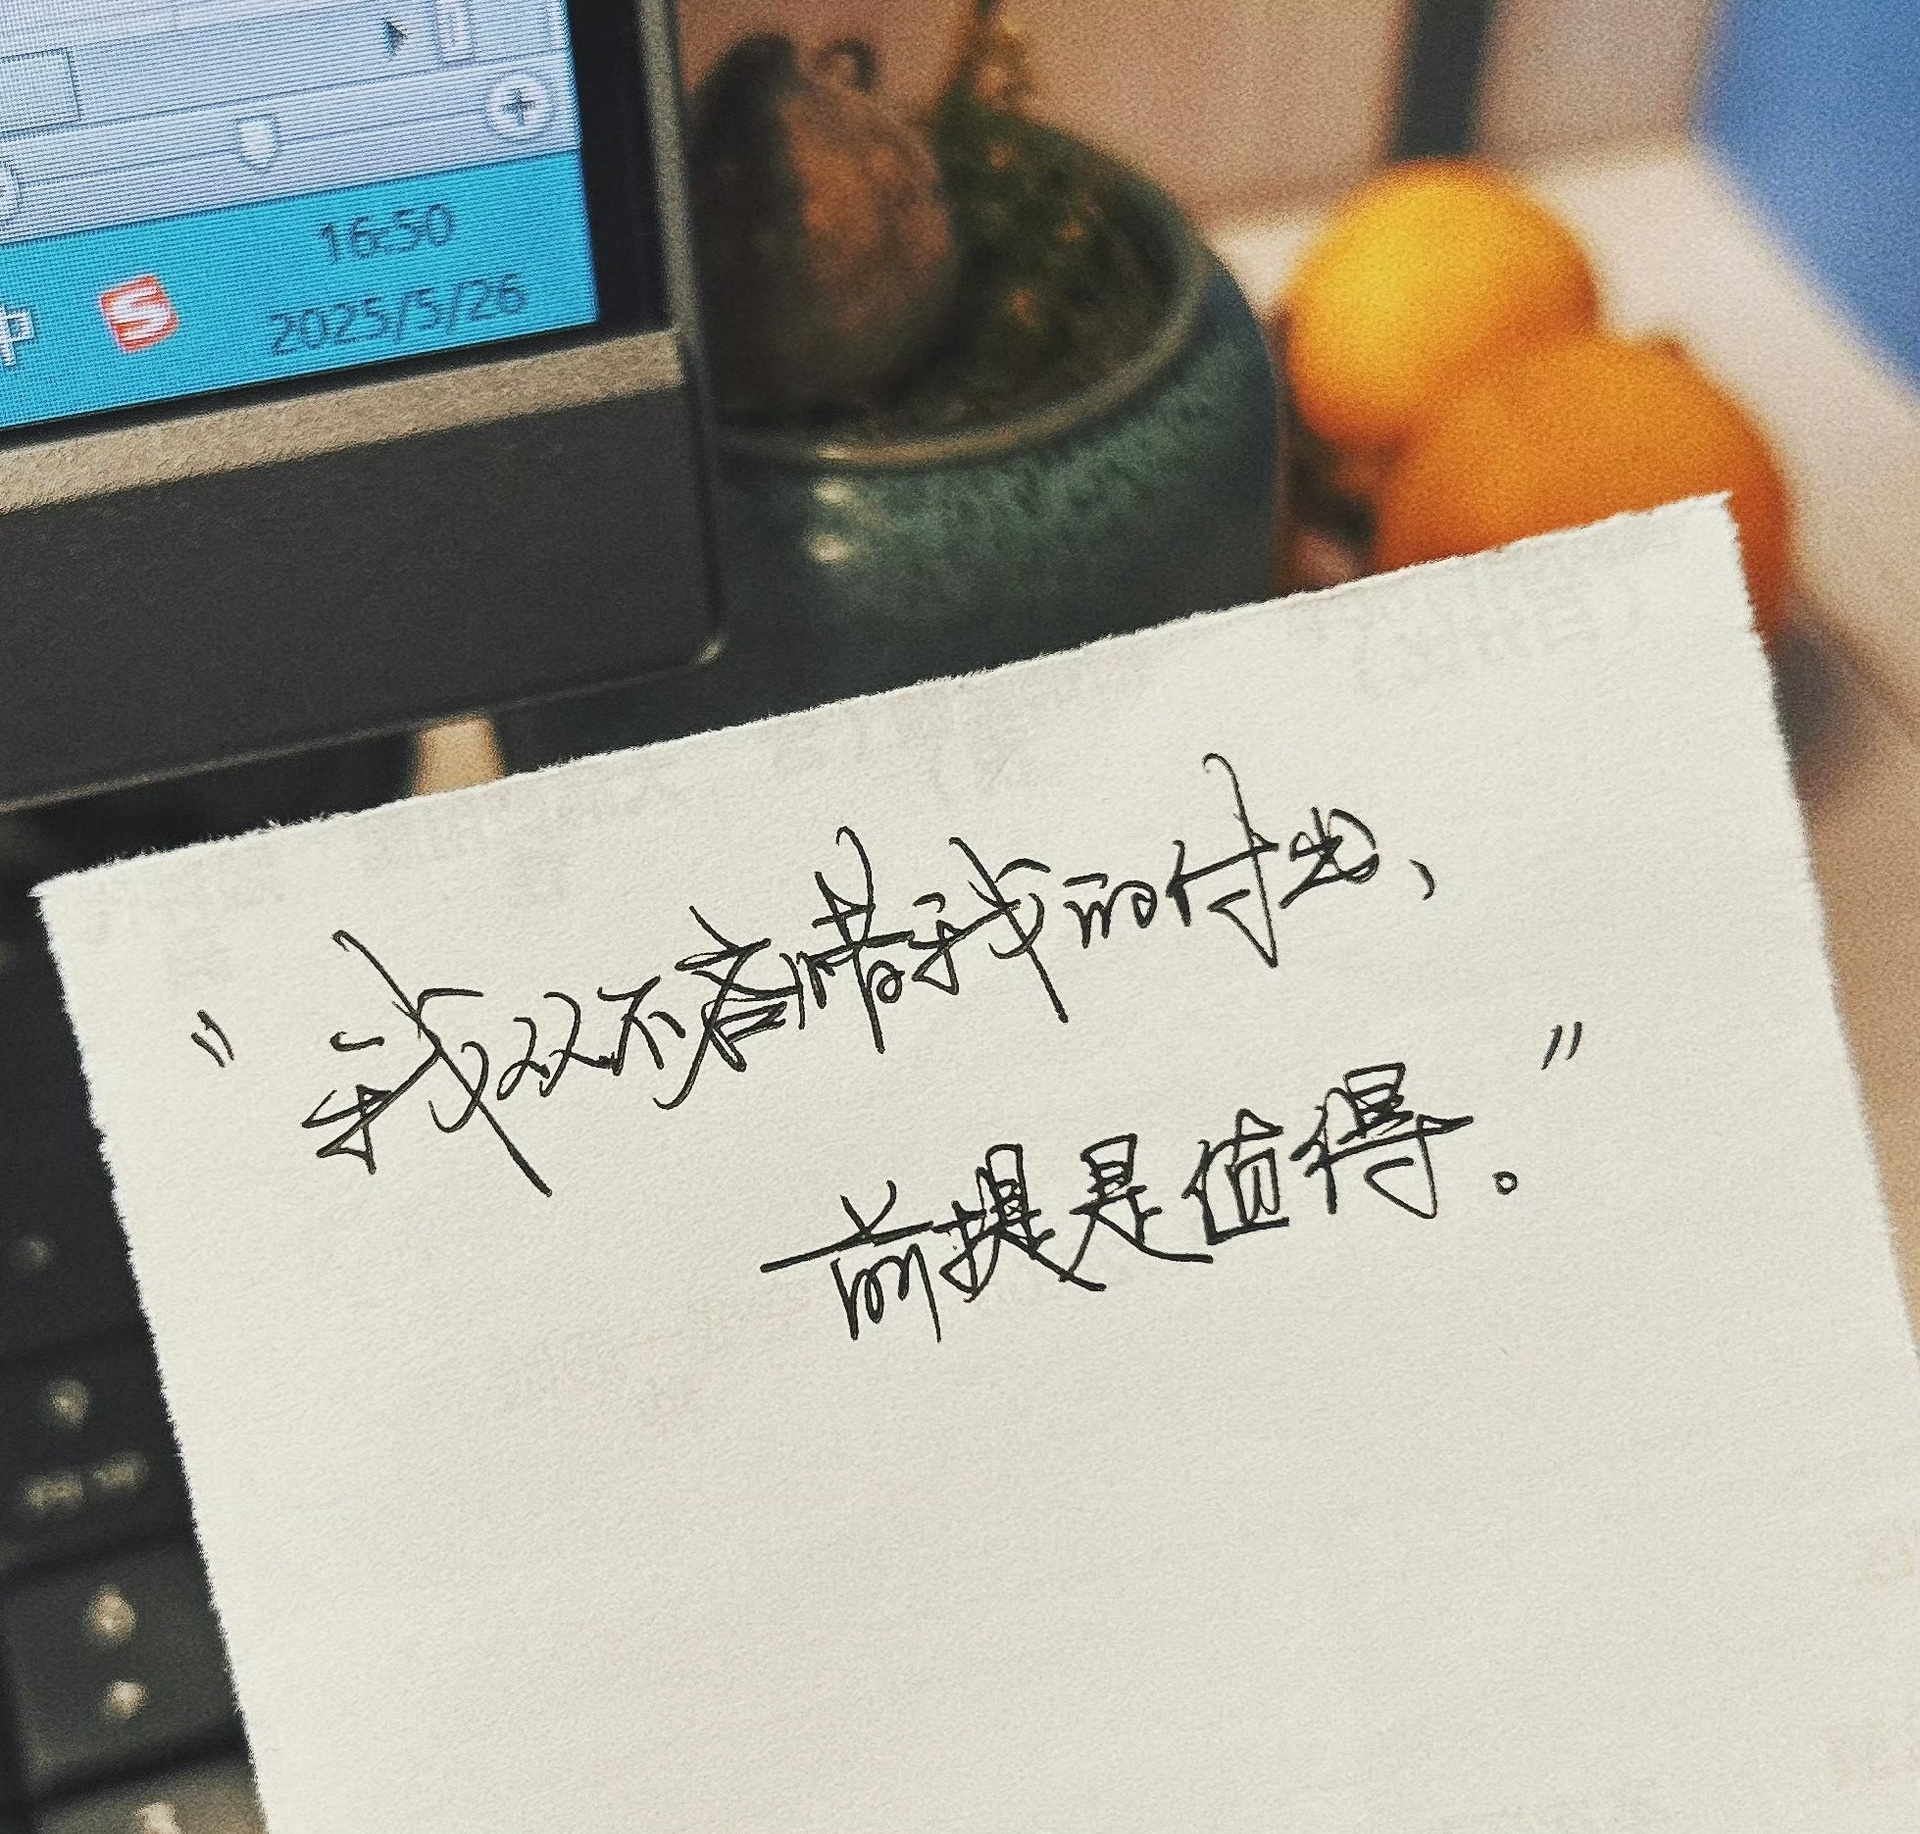 16:50
中 S 2025/5/26
"我双不吝惜我的付出、
前提是值得。"